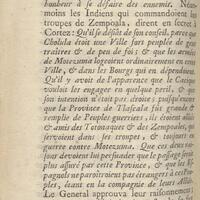 bonheur à se défaire des ennemis. Nean-
moins les Indiens qui commandoient les
troupes de Zempoala, dirent en secret à
Cortez: Qu'il se défiât de son conseil, parce que
Cholula étoit une Ville fort peuplée de gens
traîtres & de peu de foi; & que les armées
de Motezuma logeoient ordinairement en cette
Ville, & dans les Bourgs qui en dépendoient.
Qu'il y avoit de l'apparence que le Cacique
vouloit les engager en quelque peril, & que
son intention n'étoit pas droite; puisque
que la Province de Tlascala fait grande &
remplie de Peuples guerriers, ils étoient alliés
& amis des Totonaques & des Zempoales, qui
servoient dans ses troupes, & toujours en
guerre contre Motezuma. Que ces deux rai-
sons devoient lui persuader que le passage seroit
plus assuré par cette Province, & que les Es-
pagnols ne paroîtroient pas étrangers à ces Peu-
ples, étant en la compagnie de leurs Alliés.
Le General approuva leur raisonnement;